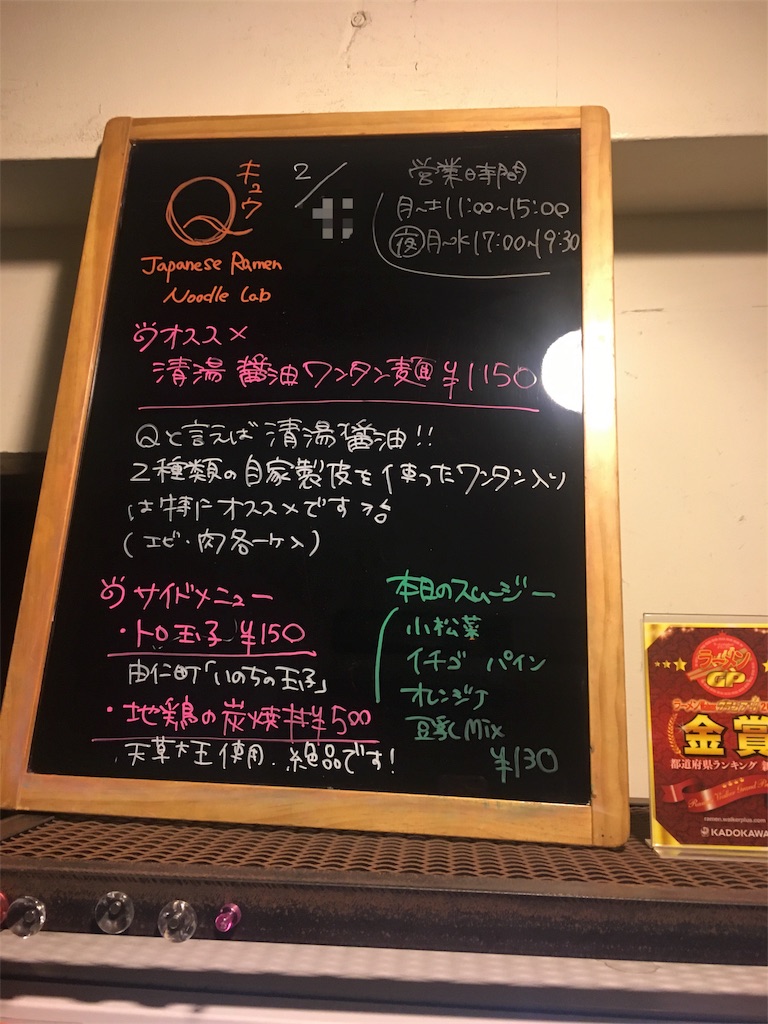 Q キュウ
2/
Japanese Ramen
Noodle Lab
営業時間
月〜土 11:00〜15:00
夜 月〜水 17:00〜19:30
オススメ
清湯醤油ワンタン麺 ¥1150
Qと言えば清湯醤油!!
2種類の自家製皮を使ったワンタン入り
は特にオススメです
(エビ・肉各一ヶ入)
サイドメニュー
・トロ玉子 ¥150
由仁町「いのちの玉子」
・地鶏の炭焼丼 ¥500
天草大王使用.絶品です!
本日のスムージー
小松菜
イチゴ パイン
オレンジ
豆乳 Mix
¥130
ラーメン
GP
ラーメン
金賞
都道府県ランキング
ramen.walkerplus.com
KADOKAWA